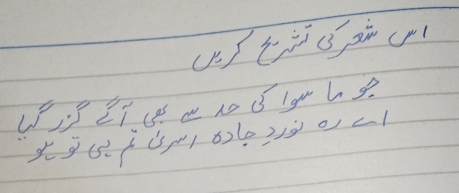 اس شعر کی تشریح کریں
جو ما سوا کی حد سے بھی آگے گزر گیا
اے رہ نوردِ جادہ اسریٰ تم ہی تو ہو